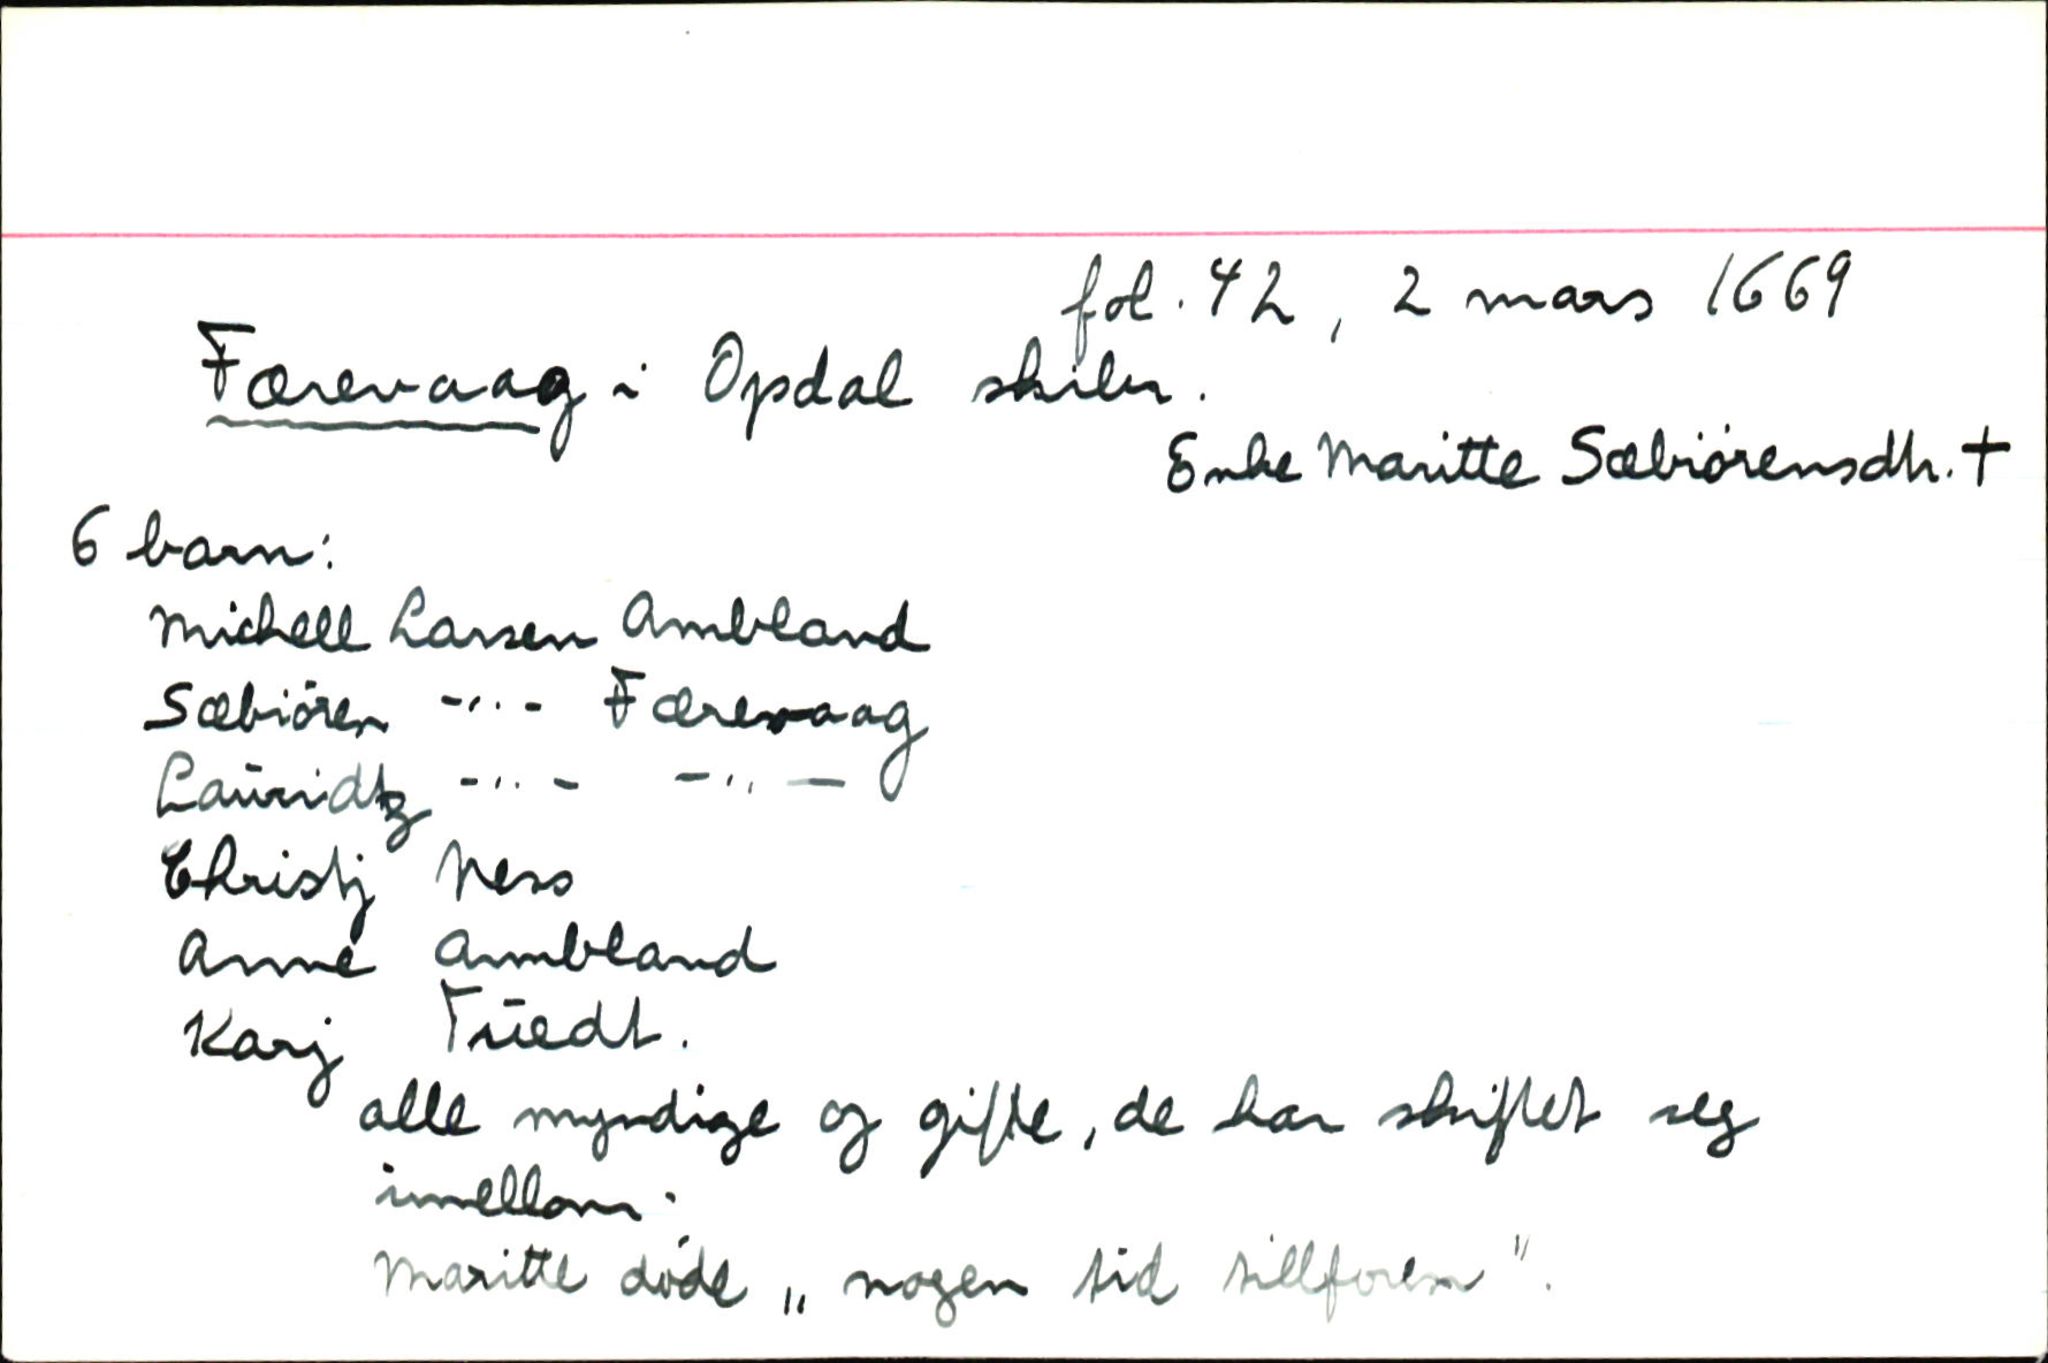 fol. 42, 2 mars 1669
Færevaag i Opdal skibr.
Enke Maritte Sæbiørensdtr. †
6 barn:
Michell Larsen Ambland
Sæbiören -"- Færevaag
Lauridtz -"- -"-
Christj Ness
Anne Ambland
Karj Tūedt.
alle myndige og gifte, de har skiftet seg
imellom.
Maritte døde „nogen tid tillforen".